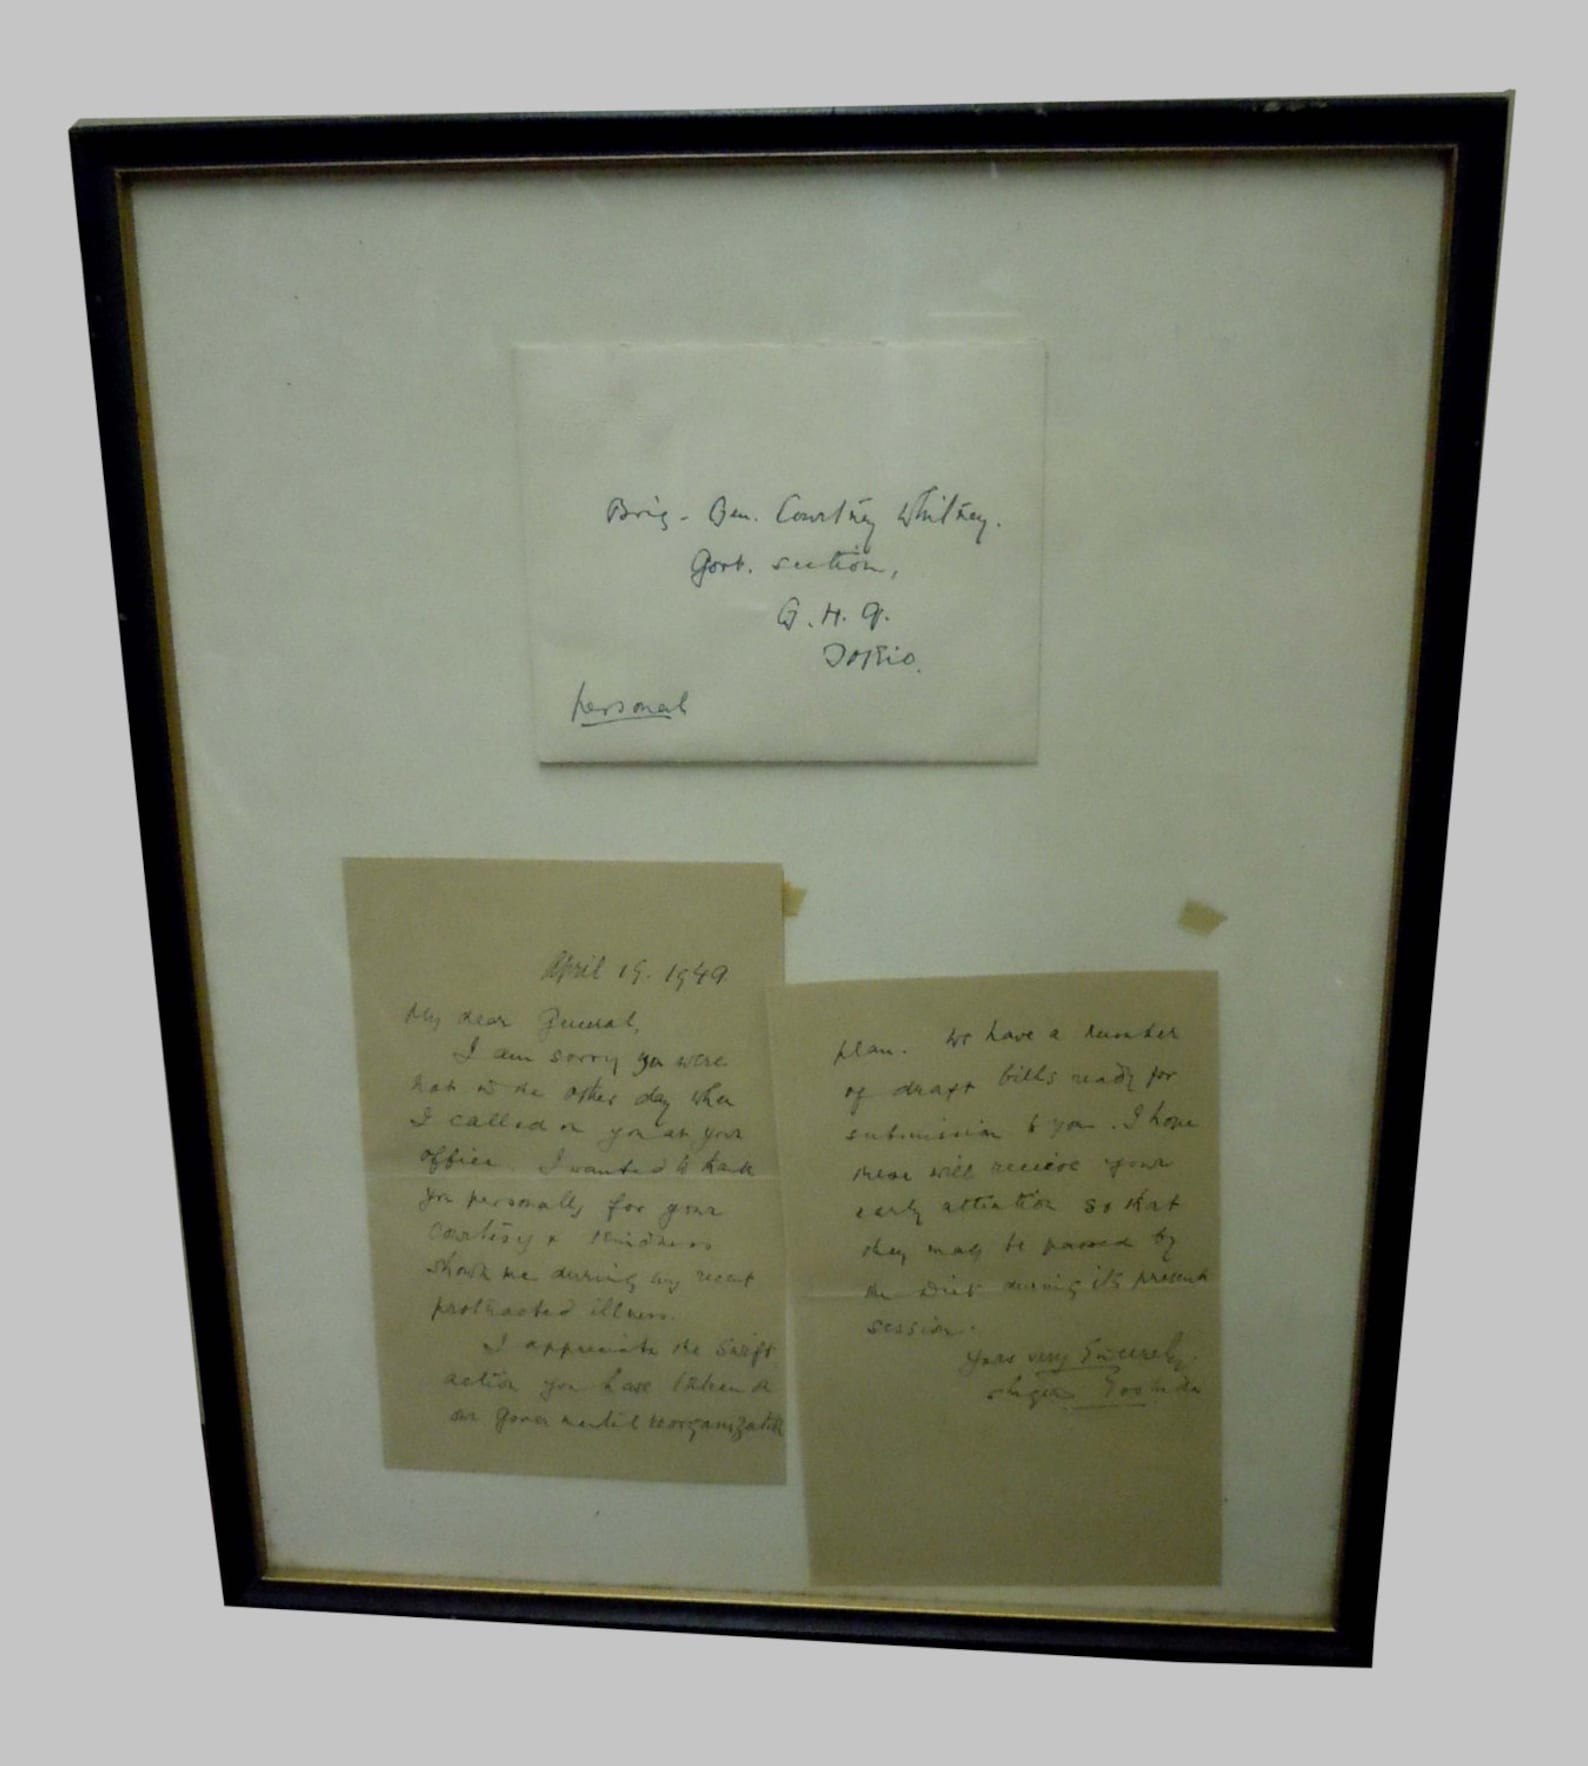 Brig - Gen. Courtney Whitney.
Govt. section,
G. H. Q.
Tokio.
personal
April 19. 1949
My dear General,
I am sorry you were
not in the other day when
I called on you at your
office. I wanted to thank
you personally for your
courtesy & kindness
shown me during my recent
protracted illness.
I appreciate the swift
action you have taken on
our governmental reorganization
plan. We have a number
of draft bills ready for
submission to you. I hope
these will receive your
early attention so that
they may be passed by
the Diet during its present
session.
Yours very sincerely,
Shigeru Yoshida